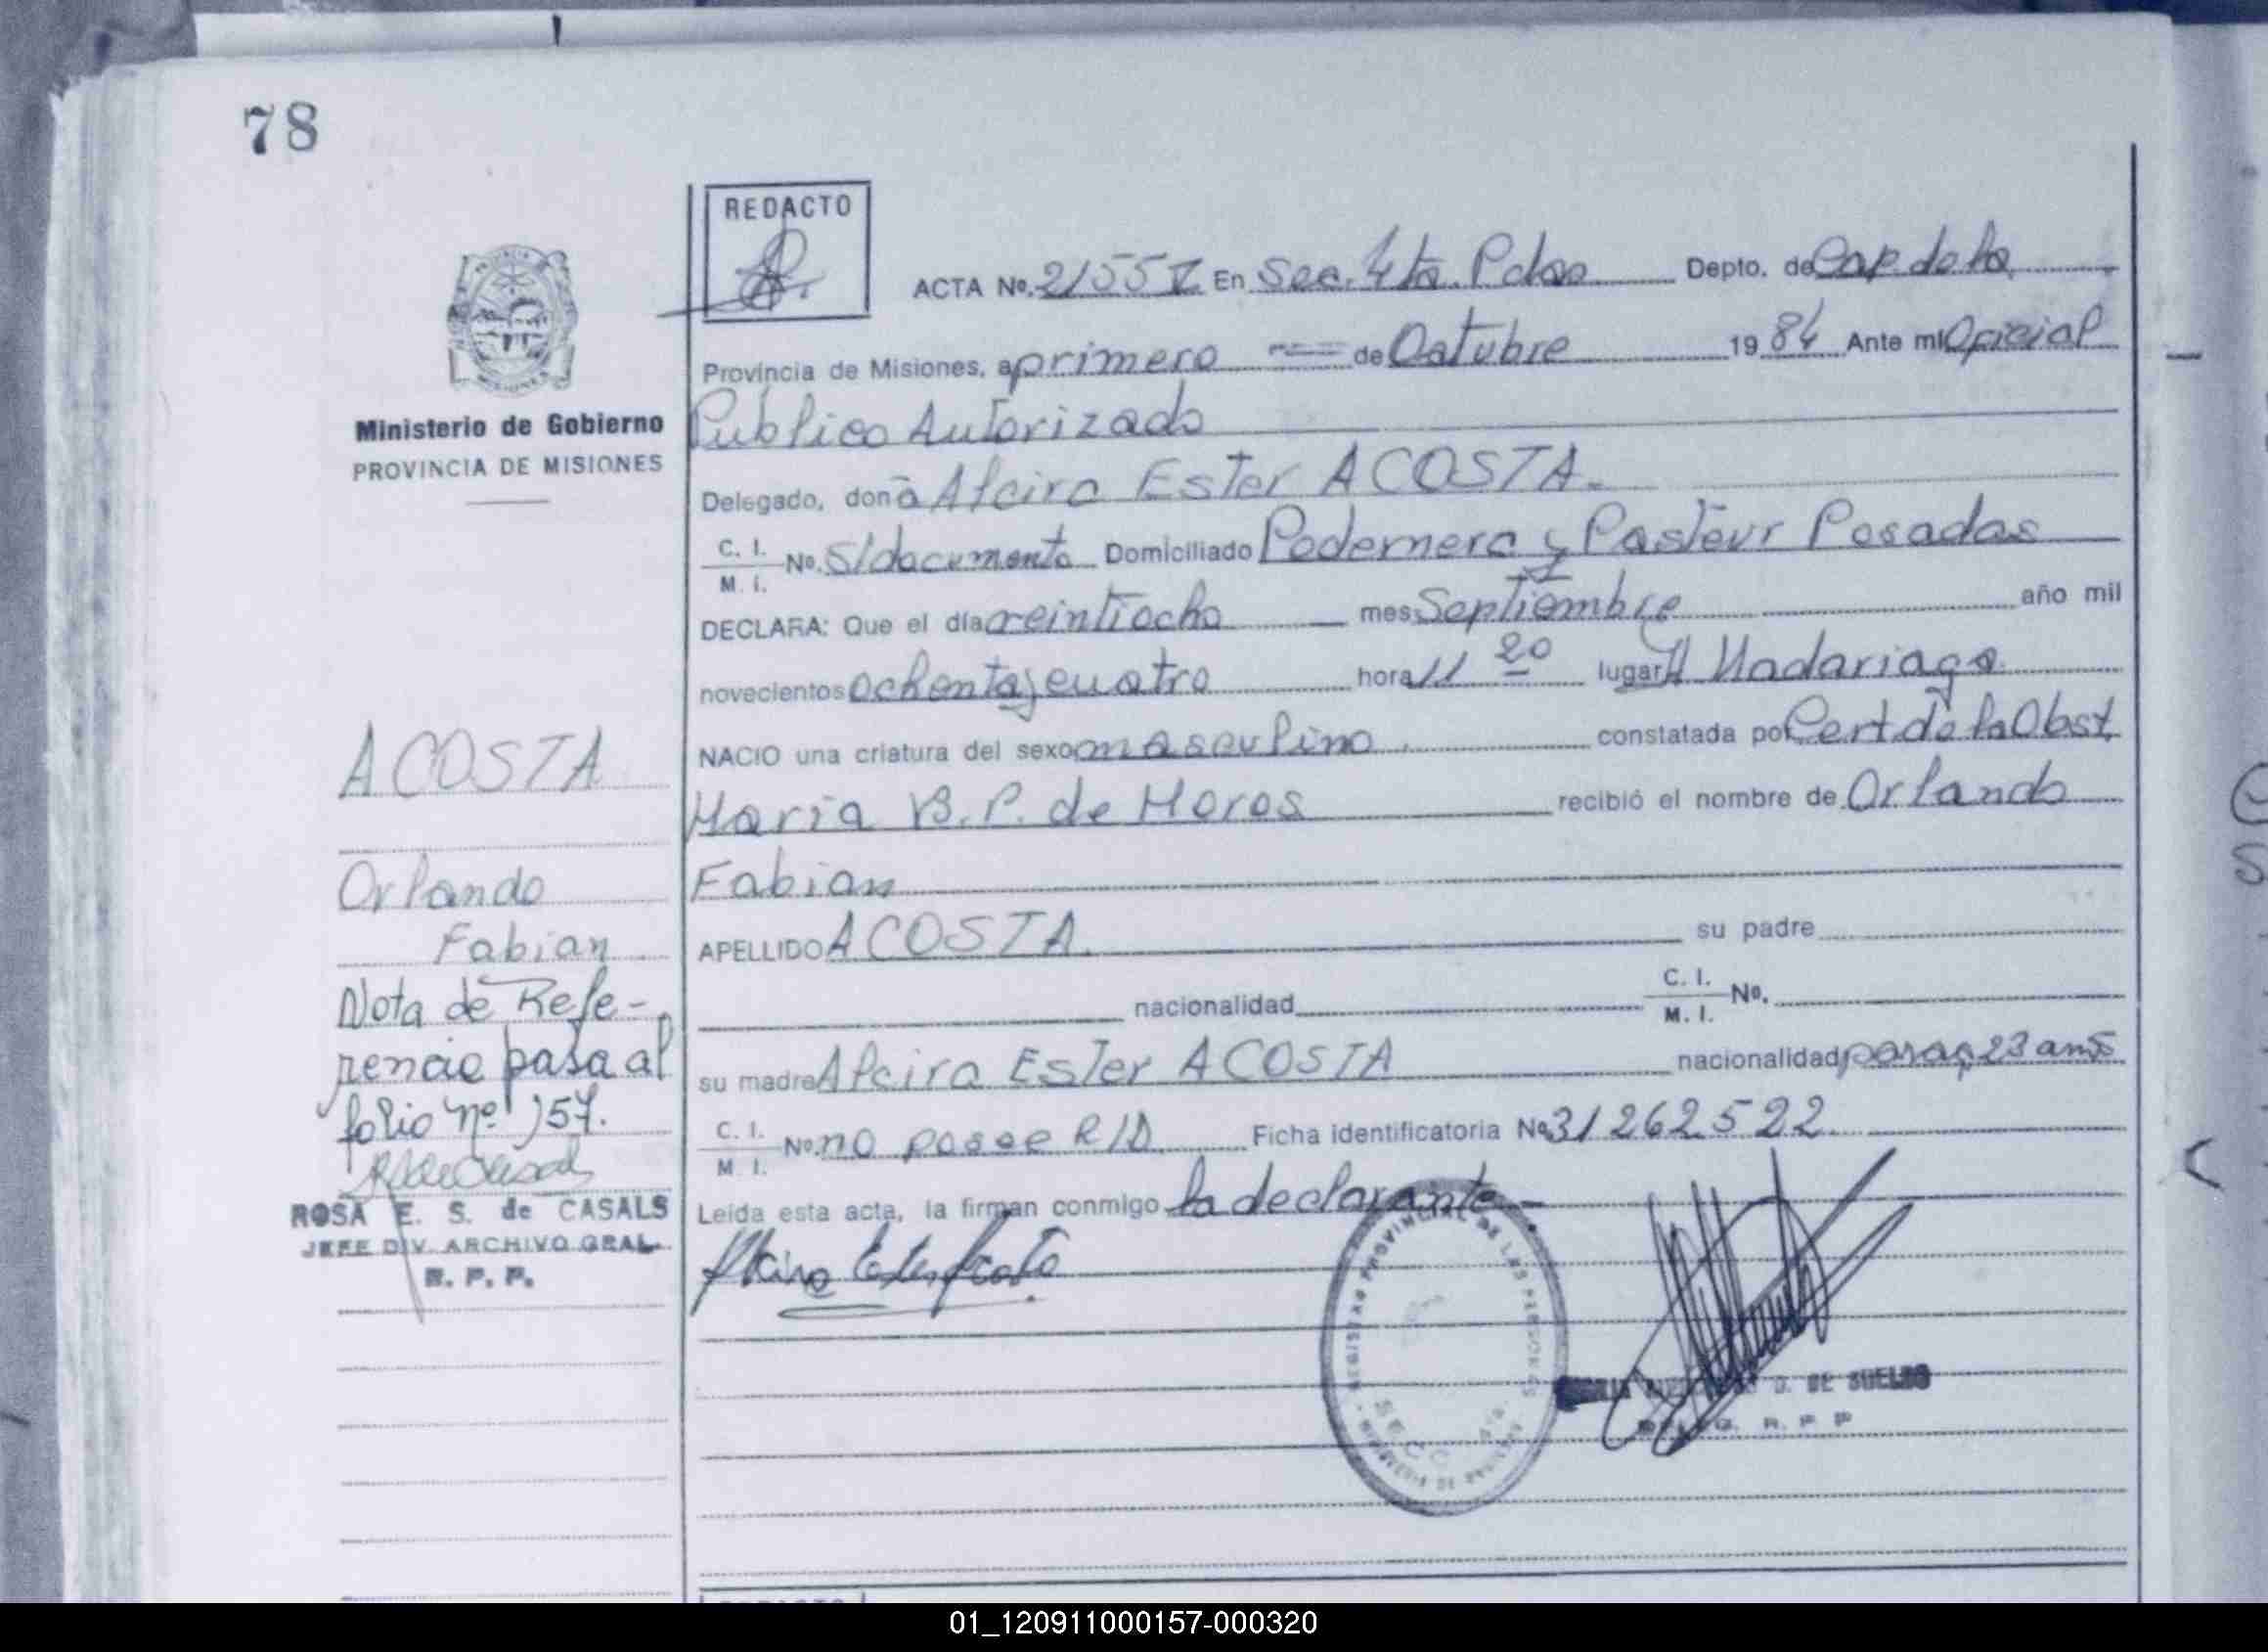 78
REDACTO
ACTA No. 2155 I En Sec. 4ta. Pdas Depto. de Cap. de la
Provincia de Misiones, a primero de Octubre 1984 Ante mi Oficial
Ministerio de Gobierno
Publico Autorizado
PROVINCIA DE MISIONES
Delegado, don a Alcira Ester ACOSTA.
C. I.
M. I. No. S/documento Domiciliado Pedernera y Pasteur Posadas
DECLARA: Que el día veintiocho mes Septiembre año mil
novecientos ochenta y cuatro hora 11 20 lugar H Madariaga
NACIO una criatura del sexo masculino constatada por Cert. de la Obst.
ACOSTA
Maria B. P. de Moros recibió el nombre de Orlando
Orlando
Fabian
Fabian
APELLIDO ACOSTA. su padre
Nota de Refe-
nacionalidad C. I.
M. I. No.
rencia pasa al
su madre Alcira Ester ACOSTA nacionalidad parag. 23 años
folio nº 157.
C. I.
M. I. No. no posee R/D Ficha identificatoria No 31262522
ROSA E. S. de CASALS
Leida esta acta, la firman conmigo la declarante
JEFE DIV. ARCHIVO GRAL.
R. P. P.
Alcira Ester Acosta
REGISTRO PROVINCIAL DE LAS PERSONAS
SECC. 4ta.
D. DE SUELDO
R. P P
01_120911000157-000320